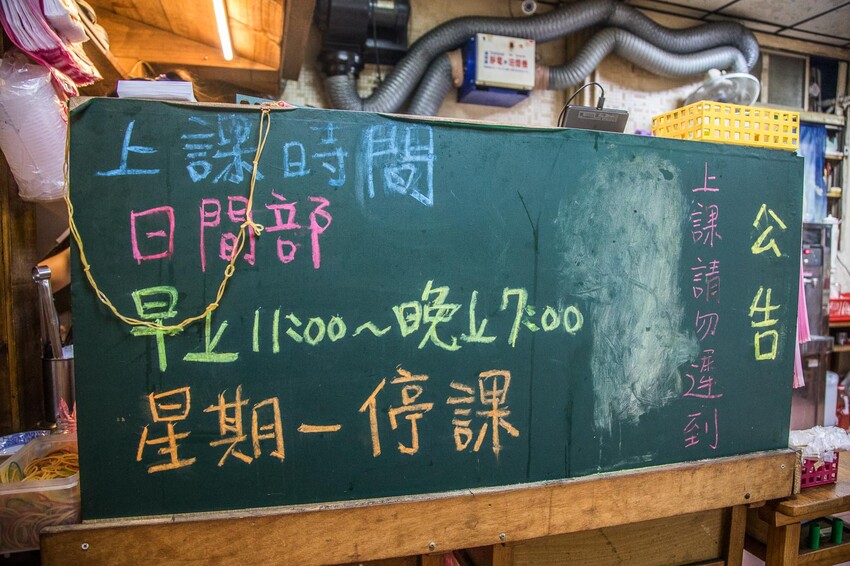 上課時間
日間部
早上11:00～晚上7:00
星期一停課
公告
上課請勿遲到
靜電油煙機